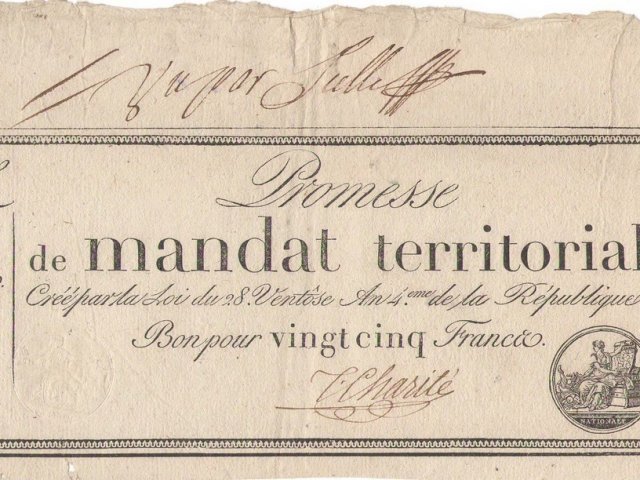 Vu par
Promesse
de mandat territorial
Créé par la Loi du 28. Ventôse An 4.eme de la République
Bon pour vingt cinq Francs.
Charité
NATIONALE